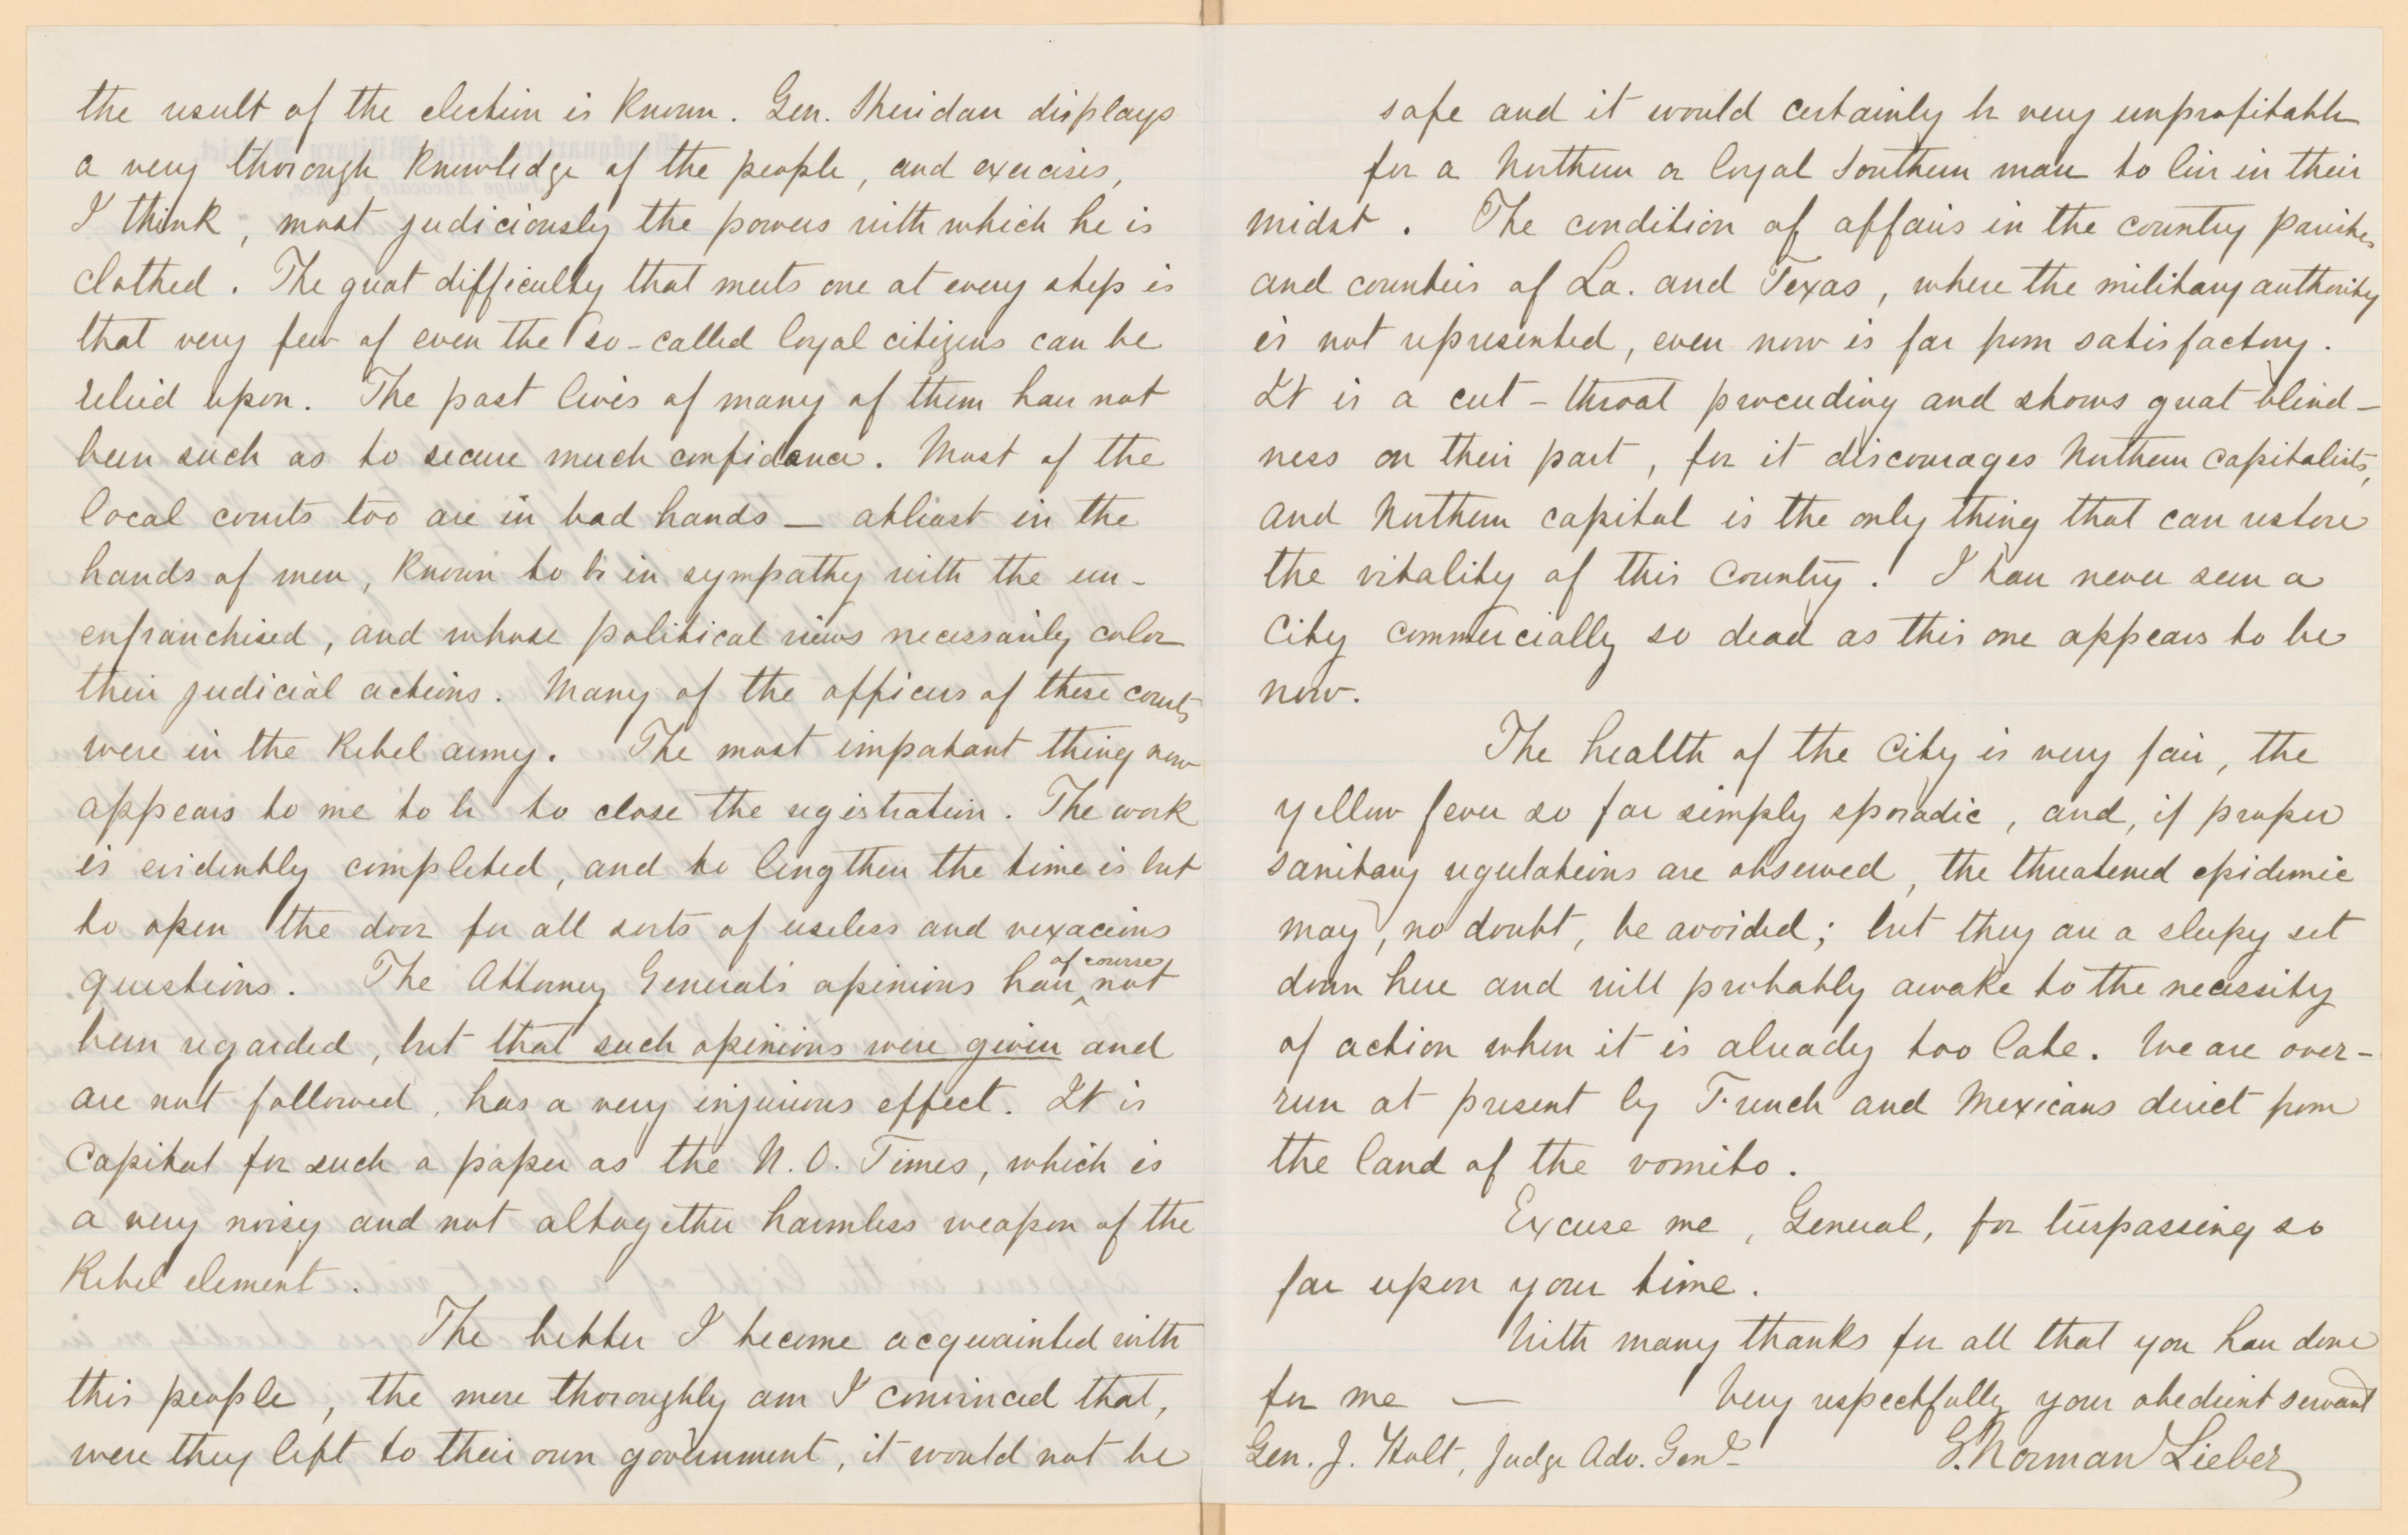 the result of the election is known. Gen. Sheridan displays
a very thorough knowledge of the people, and exercises,
I think, most judiciously the powers with which he is
clothed. The great difficulty that meets one at every step is
that very few of even the so-called loyal citizens can be
relied upon. The past lives of many of them have not
been such as to secure much confidence. Most of the
local courts too are in bad hands — atleast in the
hands of men, known to be in sympathy with the un-
enfranchised, and whose political views necessarily color
their judicial actions. Many of the officers of these courts
were in the Rebel army. The most important thing now
appears to me to be to close the registration. The work
is evidently completed, and to lengthen the time is but
to open the door for all sorts of useless and vexacious
questions. The Attorney General's opinions have of course not
been regarded, but that such opinions were given and
are not followed, has a very injurious effect. It is
Capital for such a paper as the N. O. Times, which is
a very noisy and not altogether harmless weapon of the
Rebel element.
The better I become acquainted with
this people, the more thoroughly am I convinced that,
were they left to their own government, it would not be
safe and it would certainly be very unprofitable
for a Northern or loyal Southern man to live in their
midst. The condition of affairs in the country parishes
and counties of La. and Texas, where the military authority
is not represented, even now is far from satisfactory.
It is a cut-throat proceeding and shows great blind-
ness on their part, for it discourages Northern capitalists,
and Northern capital is the only thing that can restore
the vitality of this Country. I have never seen a
City commercially so dead as this one appears to be
now.
The health of the City is very fair, the
yellow fever so far simply sporadic, and, if proper
sanitary regulations are observed, the threatened epidemic
may, no doubt, be avoided; but they are a sleepy set
down here and will probably awake to the necessity
of action when it is already too late. We are over-
run at present by French and Mexicans direct from
the land of the vomito.
Excuse me, General, for trespassing so
far upon your time.
With many thanks for all that you have done
for me — Very respectfully your obedient servant
Gen. J. Holt, Judge Adv. Genl. G. Norman Lieber